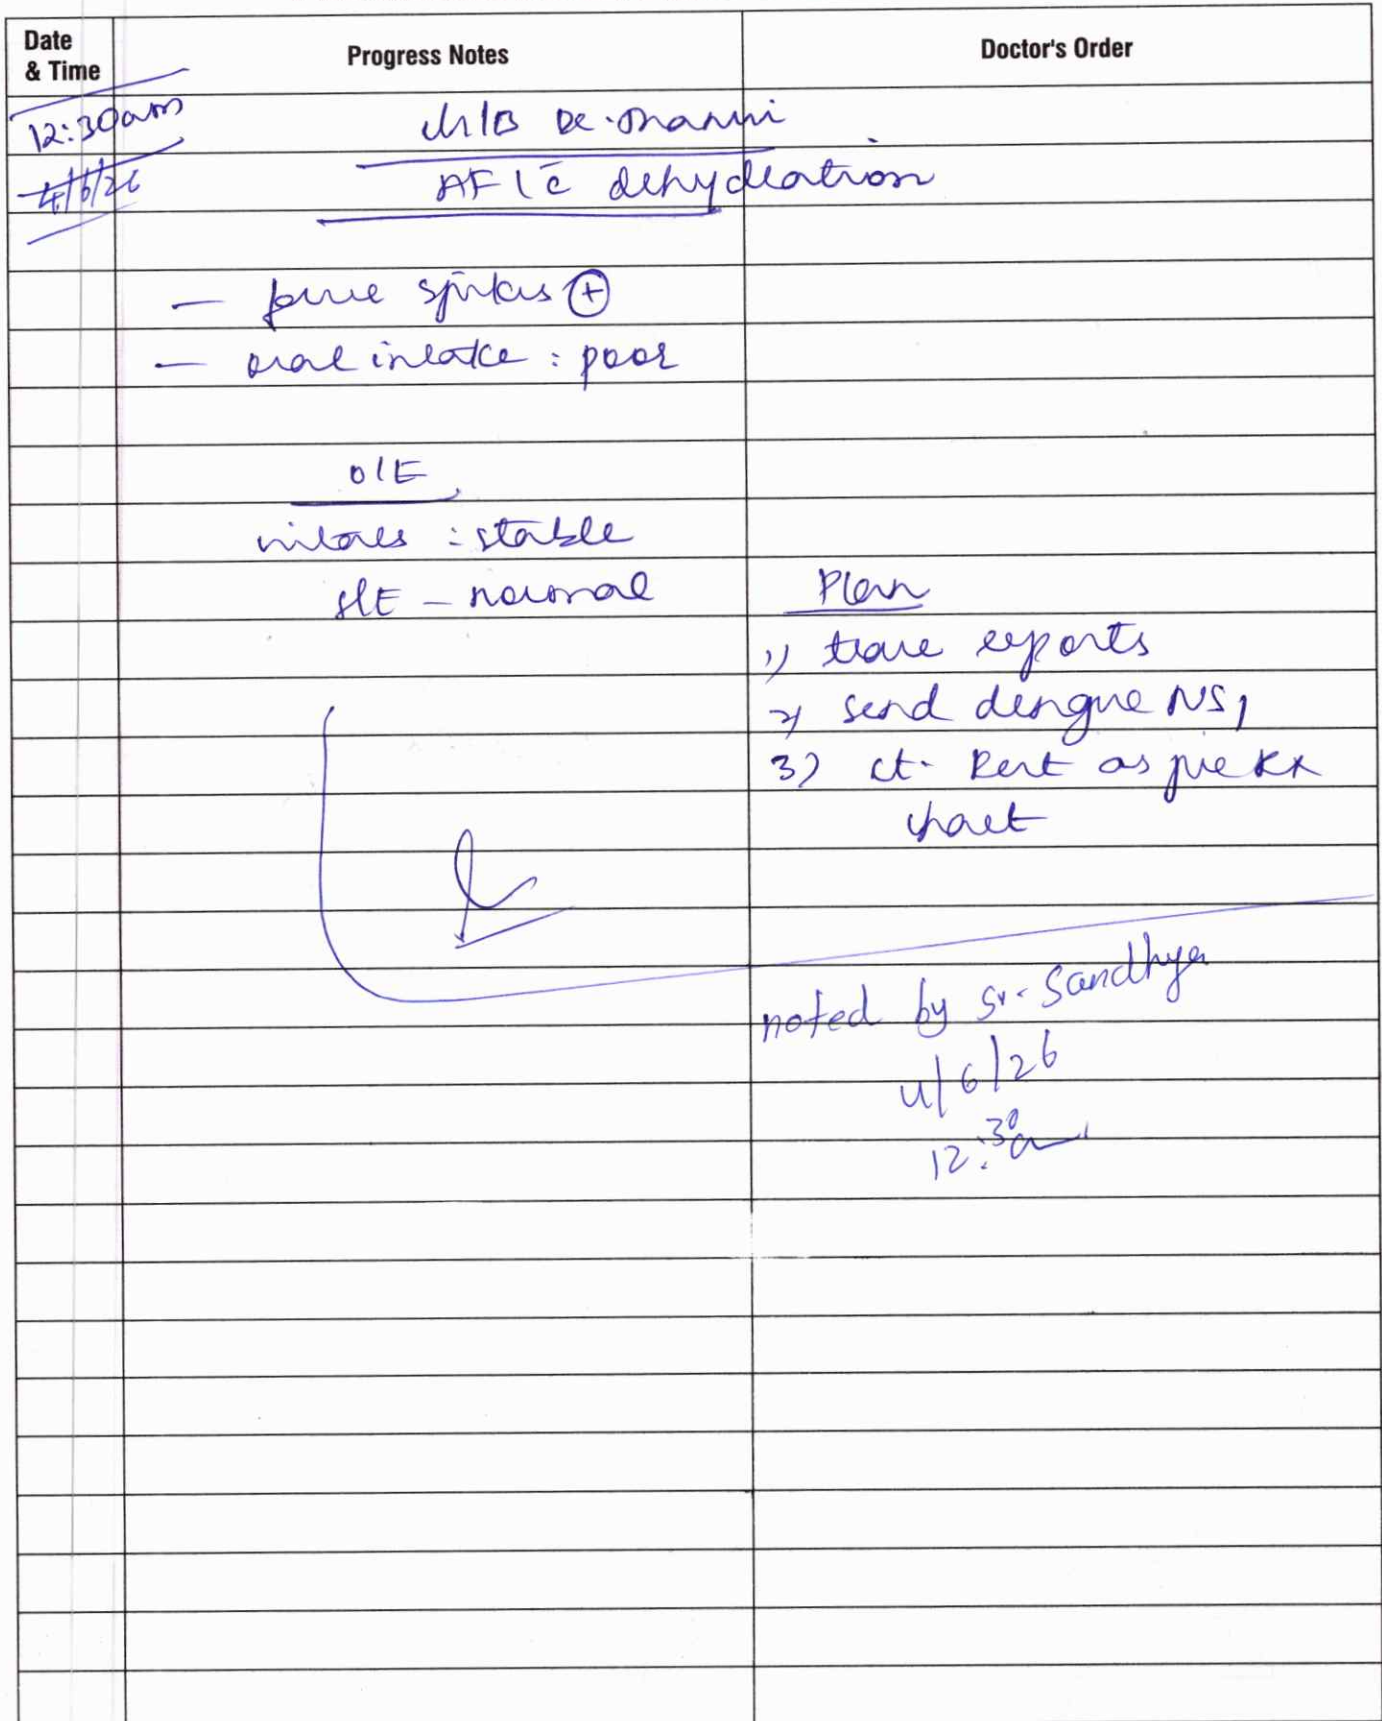 Date & Time
Progress Notes
Doctor's Order
12:30am
4/6/26
AFI c̄ dehydration
— fever spikes ⊕
— oral intake : poor
O/E
vitals : stable
S/E – normal
Plan
1) trace reports
2) send dengue NS1
3) ct. Rest as per Rx
chart
noted by Sr. Sandhya
4/6/26
12:30am